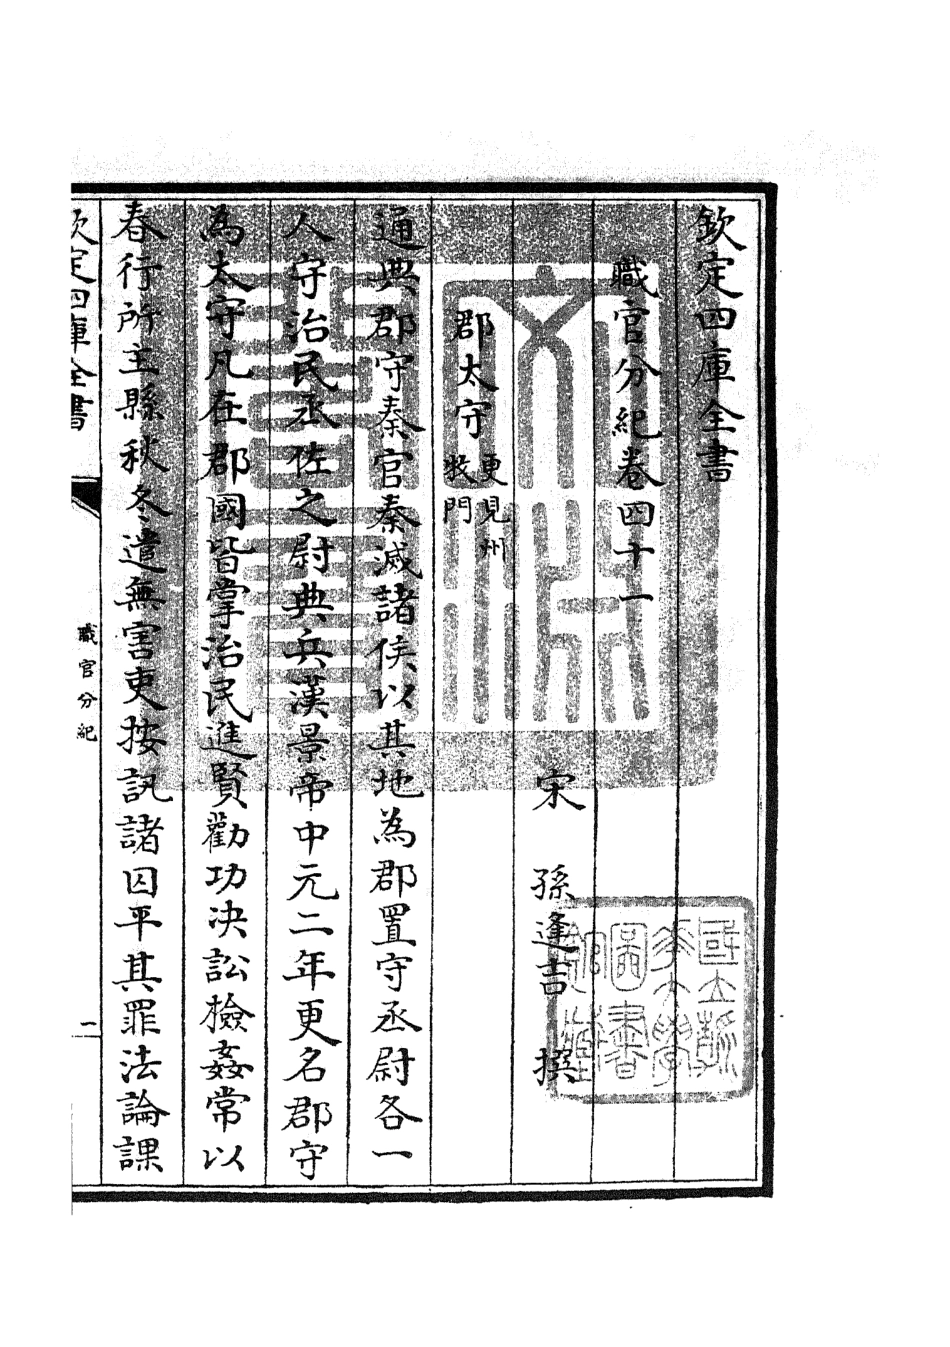 欽定四庫全書
職官分紀卷四十一
宋 孫逢吉 撰
郡太守 更見州牧門
通典郡守秦官秦滅諸侯以其地為郡置守丞尉各一
人守治民丞佐之尉典兵漢景帝中元二年更名郡守
為太守凡在郡國皆掌治民進賢勸功決訟檢姦常以
春行所主縣秋冬遣無害吏按訊諸囚平其罪法論課
欽定四庫全書
職官分紀
二
文淵閣寶